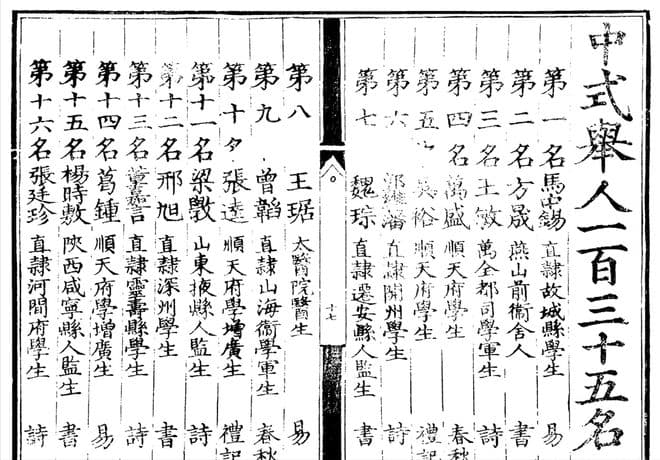 中式舉人一百三十五名
第一名馬中錫 直隸故城縣學生 詩
第二名方晟 燕山前衞舍人 書
第三名王敏 萬全都司學軍生 詩
第四名萬盛 順天府學生 春秋
第五 吳裕 順天府學生 禮記
第六 潘 直隸 州學生 詩
第七 魏琮 直隸遷安縣人監生 書
十七
第八 王琚 太醫院醫生 易
第九 曾韜 直隸山海衞學軍生 春秋
第十名張逵 順天府學增廣生 禮記
第十一名梁斆 山東掖縣人監生 詩
第十二名邢旭 直隸深州學生 書
第十三名 言 直隸靈壽縣學生 詩
第十四名葛鍾 順天府學增廣生 易
第十五名楊時敷 陝西咸寧縣人監生 書
第十六名張廷珍 直隸河間府學生 詩